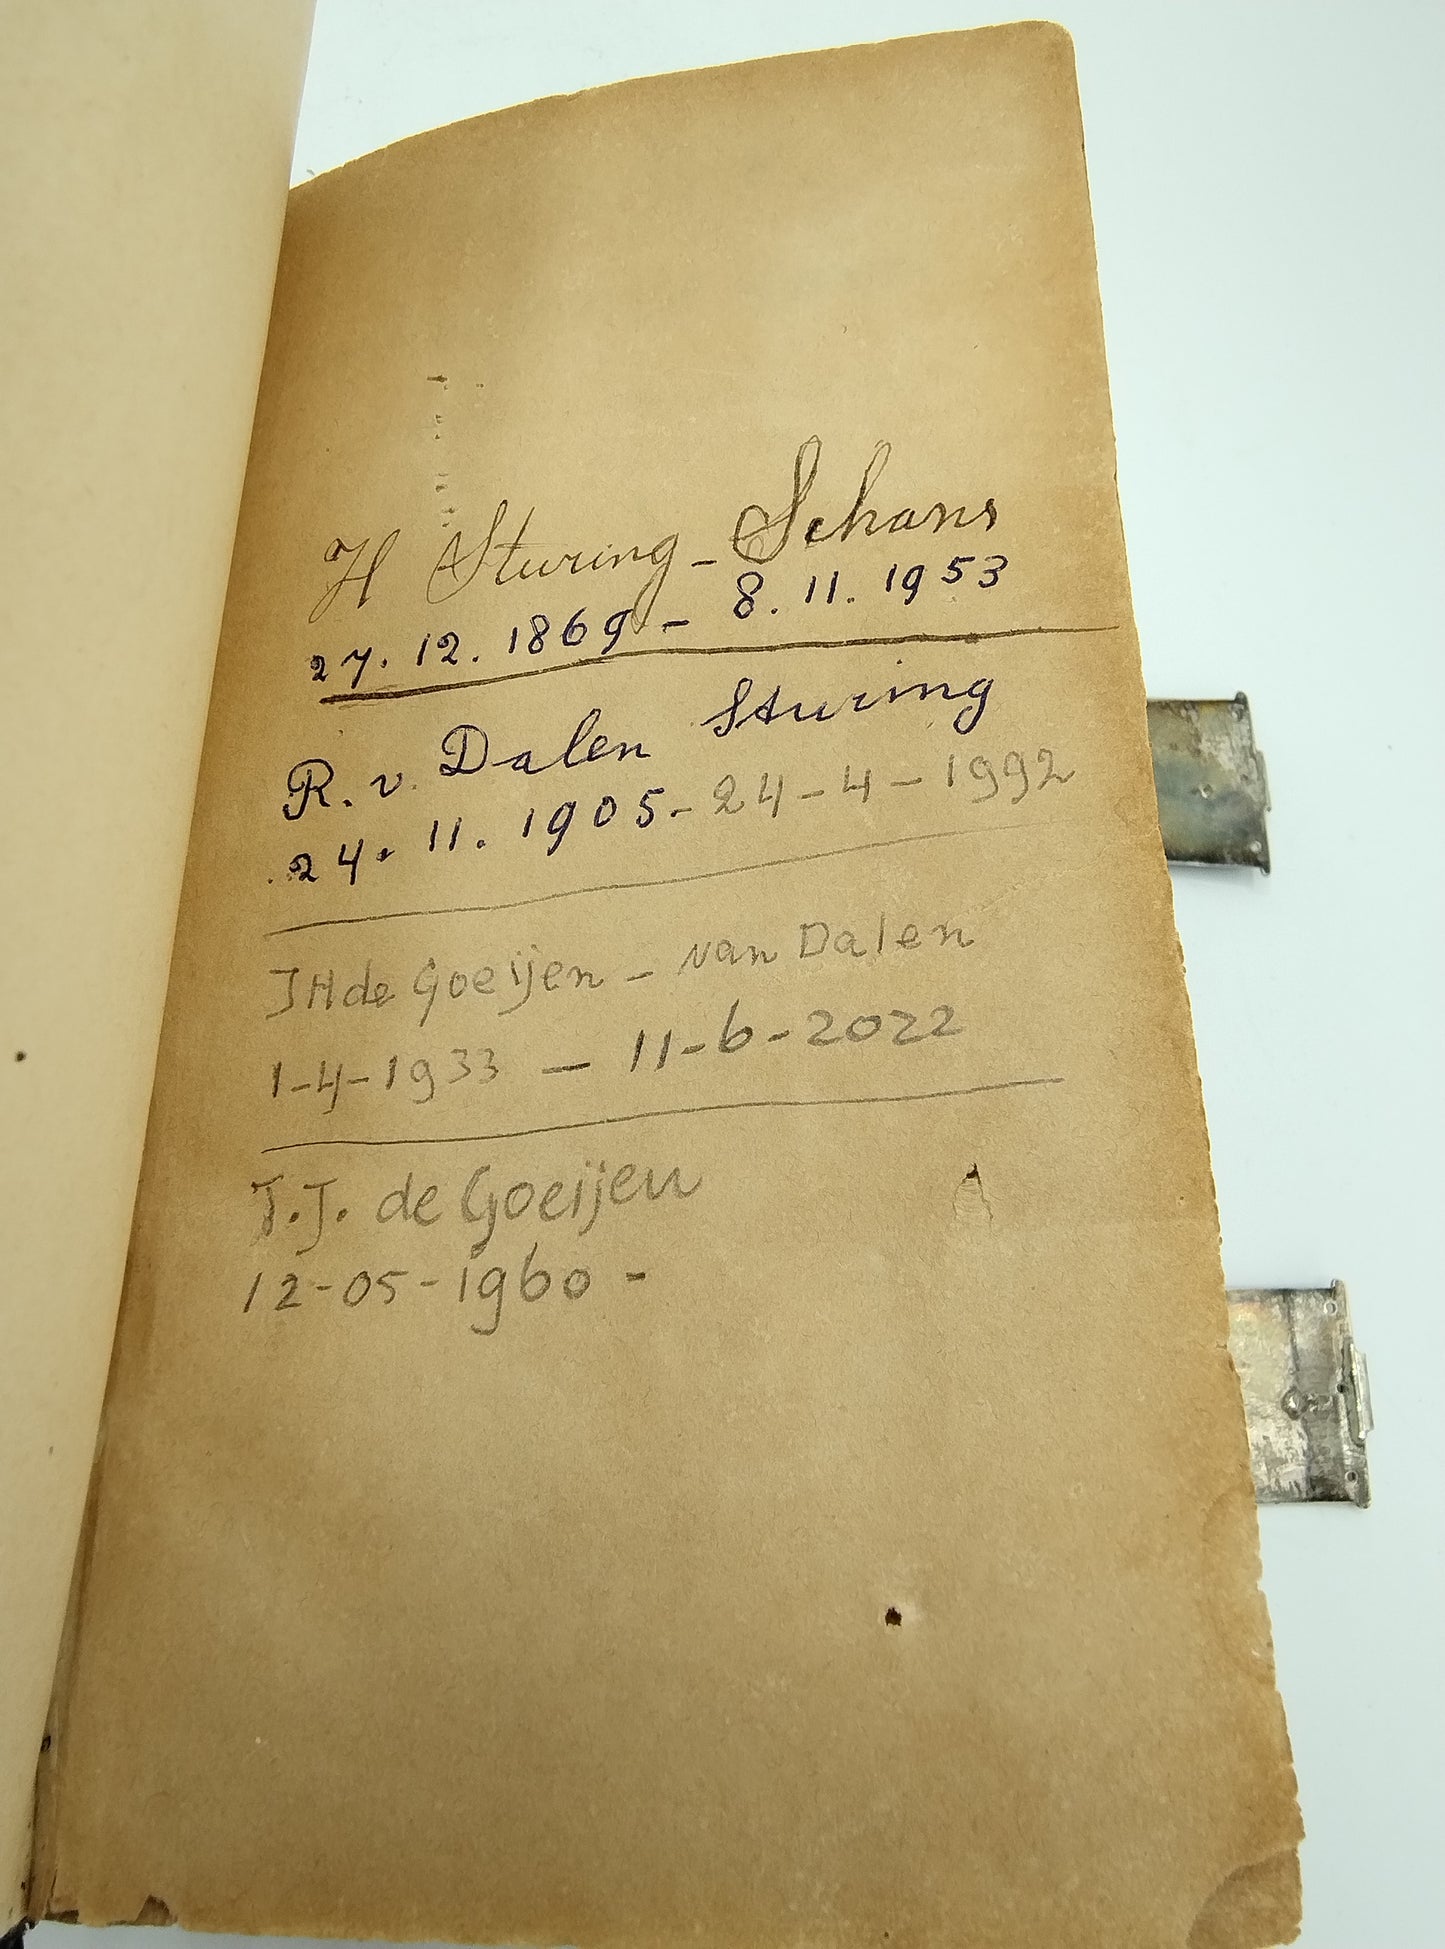 H Sturing - Schans
27.12.1869 - 8.11.1953
R. v. Dalen Sturing
24.11.1905 - 24-4-1992
JH de Goeijen - van Dalen
1-4-1933 - 11-6-2022
T.J. de Goeijen
12-05-1960 -